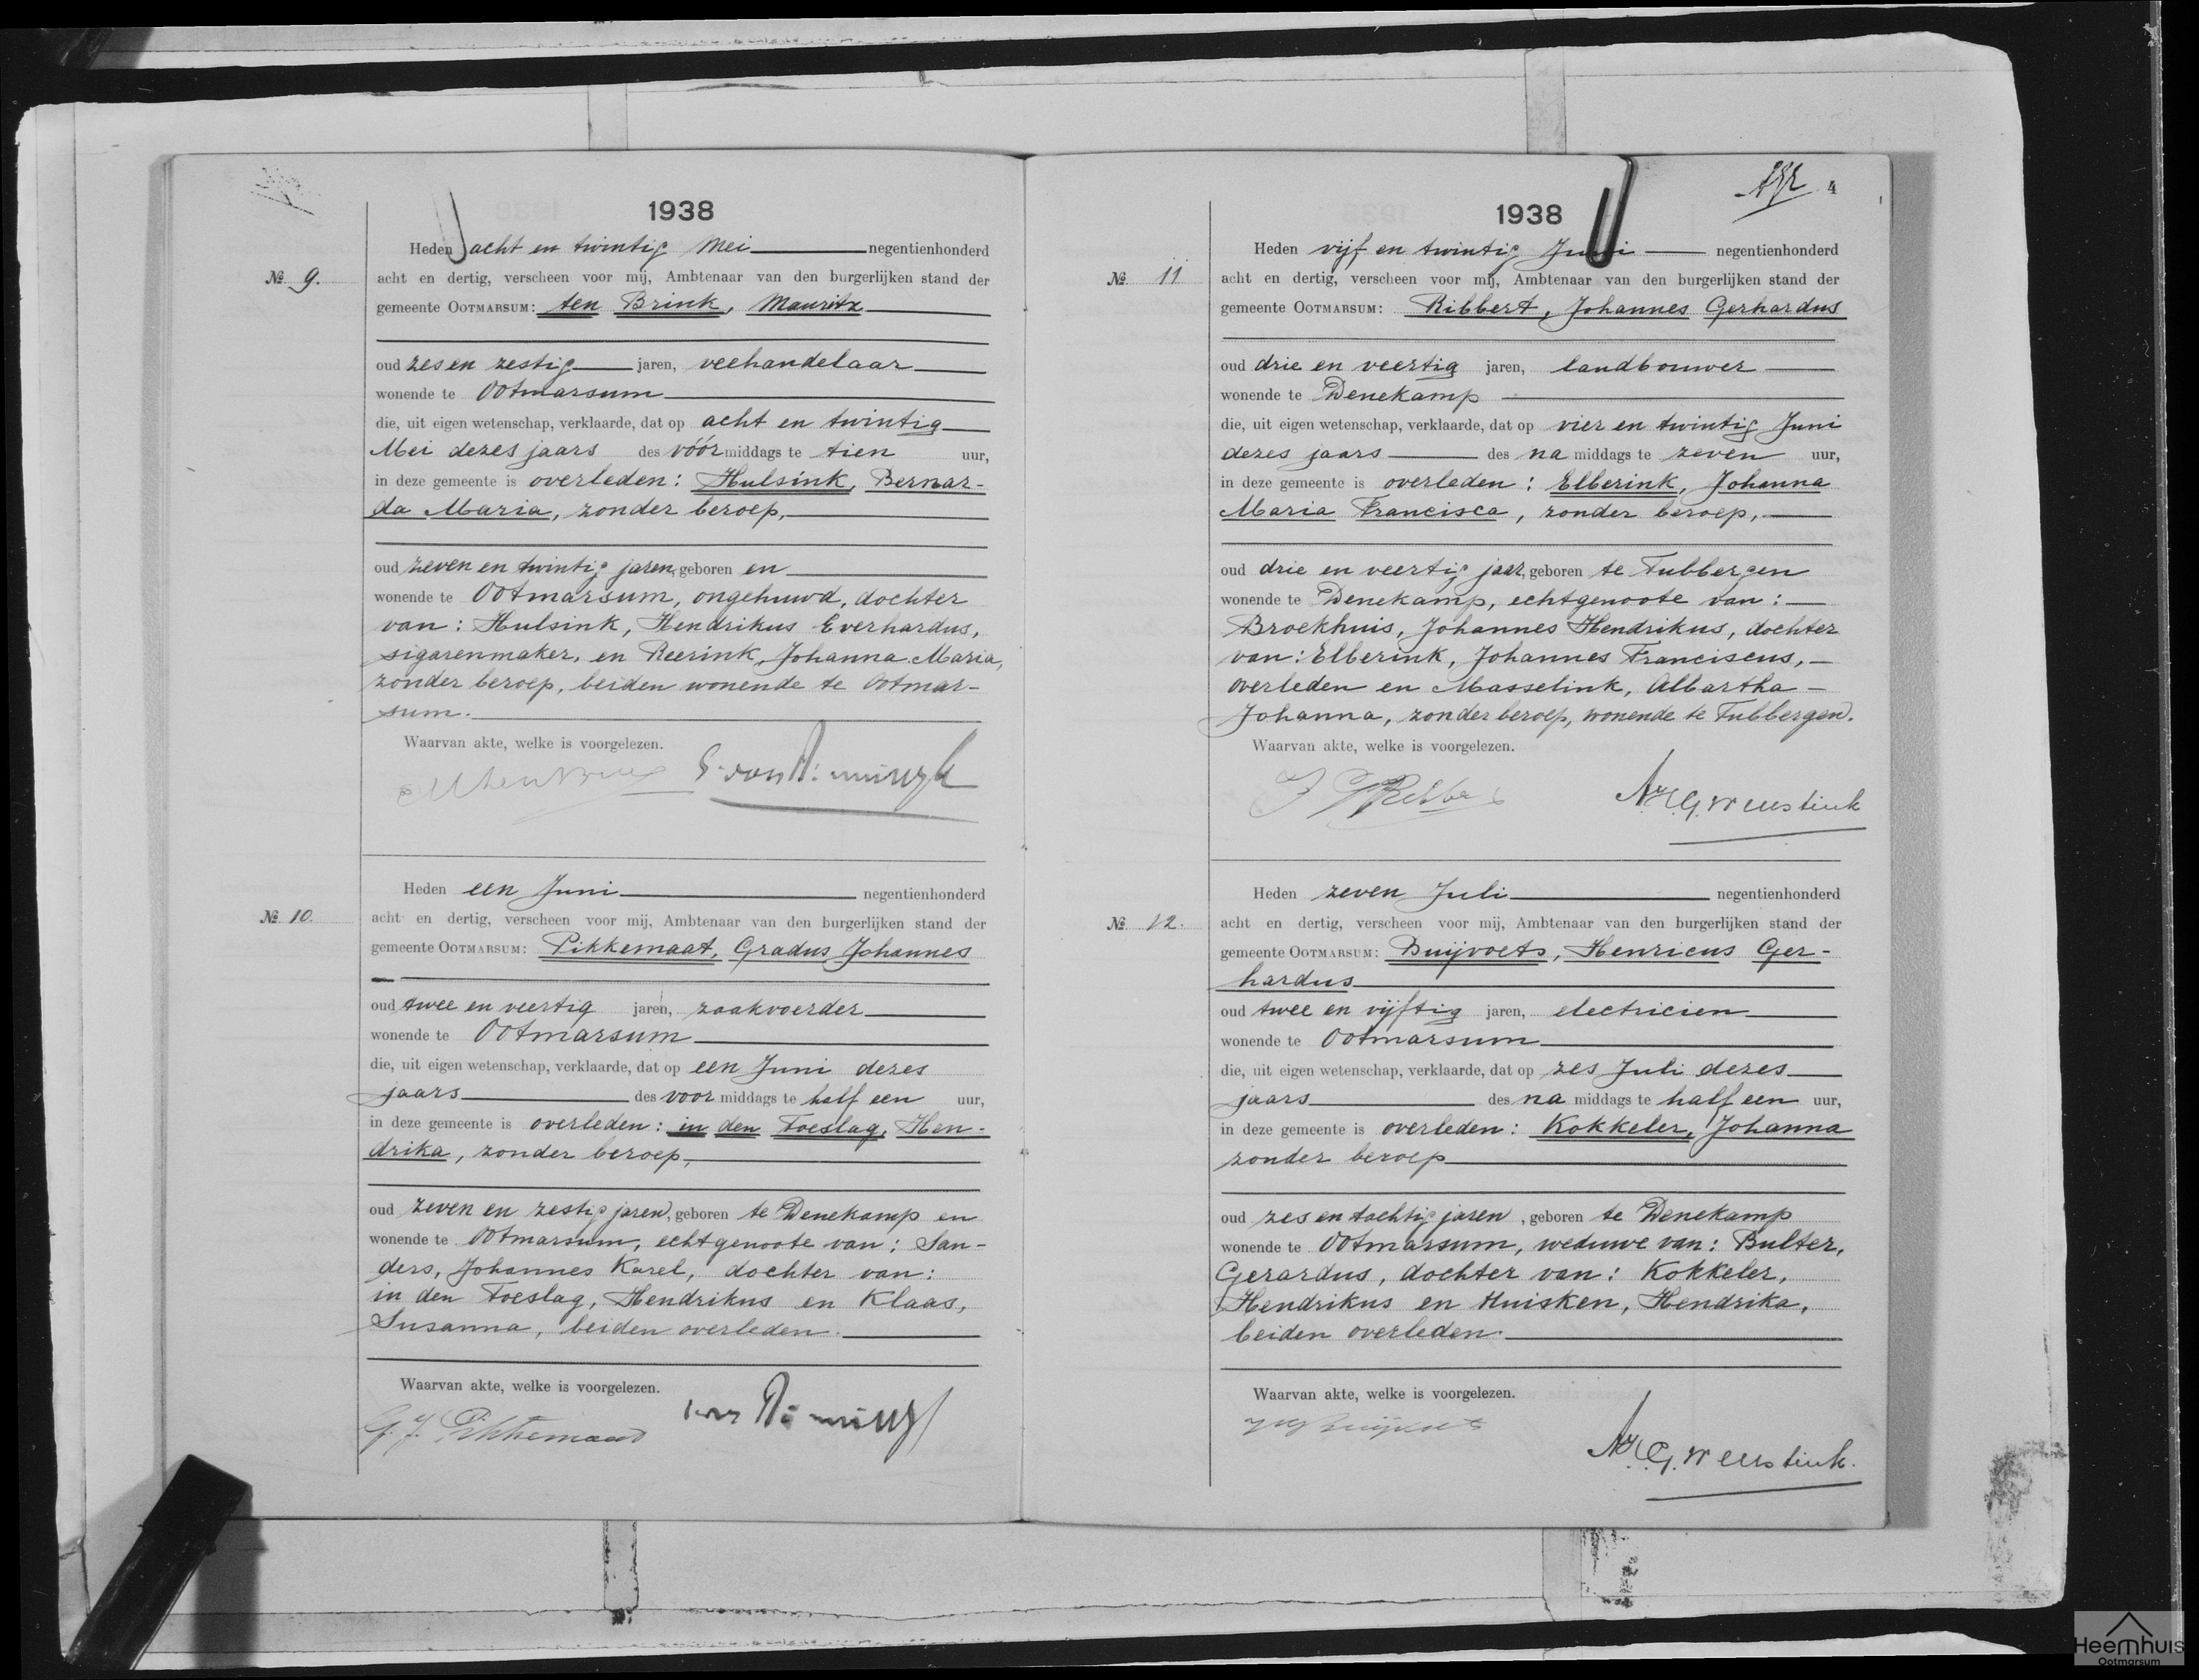 1938
Heden acht en twintig Mei negentienhonderd
№ 9. acht en dertig, verscheen voor mij, Ambtenaar van den burgerlijken stand der
gemeente OOTMARSUM: ten Brink, Mauritz
oud zes en zestig jaren, veehandelaar
wonende te Ootmarsum
die, uit eigen wetenschap, verklaarde, dat op acht en twintig
Mei dezes jaars des vóórmiddags te tien uur,
in deze gemeente is overleden: Hulsink, Bernar-
da Maria, zonder beroep,
oud zeven en twintig jaren, geboren en
wonende te Ootmarsum, ongehuwd, dochter
van: Hulsink, Hendrikus Everhardus,
sigarenmaker, en Reerink, Johanna Maria,
zonder beroep, beiden wonende te Ootmar-
sum.
Waarvan akte, welke is voorgelezen.
Heden een Juni negentienhonderd
№ 10. acht en dertig, verscheen voor mij, Ambtenaar van den burgerlijken stand der
gemeente OOTMARSUM: Pikkemaat, Gradus Johannes
oud twee en veertig jaren, zaakvoerder
wonende te Ootmarsum
die, uit eigen wetenschap, verklaarde, dat op een Juni dezes
jaars des voormiddags te half een uur,
in deze gemeente is overleden: in den Toeslag, Hen-
drika, zonder beroep,
oud zeven en zestig jaren, geboren te Denekamp en
wonende te Ootmarsum, echtgenoote van: San-
ders, Johannes Karel, dochter van:
in den Toeslag, Hendrikus en Klaas,
Susanna, beiden overleden.
Waarvan akte, welke is voorgelezen.
G. J. Pikkemaat
4
1938
Heden vijf en twintig Juni negentienhonderd
№ 11 acht en dertig, verscheen voor mij, Ambtenaar van den burgerlijken stand der
gemeente OOTMARSUM: Ribbert, Johannes Gerhardus
oud drie en veertig jaren, landbouwer
wonende te Denekamp
die, uit eigen wetenschap, verklaarde, dat op vier en twintig Juni
dezes jaars des na middags te zeven uur,
in deze gemeente is overleden: Elberink, Johanna
Maria Francisca, zonder beroep,
oud drie en veertig jaar, geboren te Tubbergen
wonende te Denekamp, echtgenoote van:
Broekhuis, Johannes Hendrikus, dochter
van: Elberink, Johannes Franciscus,
overleden en Masselink, Albartha
Johanna, zonder beroep, wonende te Tubbergen.
Waarvan akte, welke is voorgelezen.
Heden zeven Juli negentienhonderd
№ 12. acht en dertig, verscheen voor mij, Ambtenaar van den burgerlijken stand der
gemeente OOTMARSUM: Duijvoets, Henricus Ger-
hardus
oud twee en vijftig jaren, electricien
wonende te Ootmarsum
die, uit eigen wetenschap, verklaarde, dat op zes Juli dezes
jaars des na middags te half een uur,
in deze gemeente is overleden: Kokkeler, Johanna
zonder beroep
oud zes en tachtig jaren, geboren te Denekamp
wonende te Ootmarsum, weduwe van: Bulter,
Gerardus, dochter van: Kokkeler,
Hendrikus en Huisken, Hendrika,
beiden overleden.
Waarvan akte, welke is voorgelezen.
Heemhuis
Ootmarsum